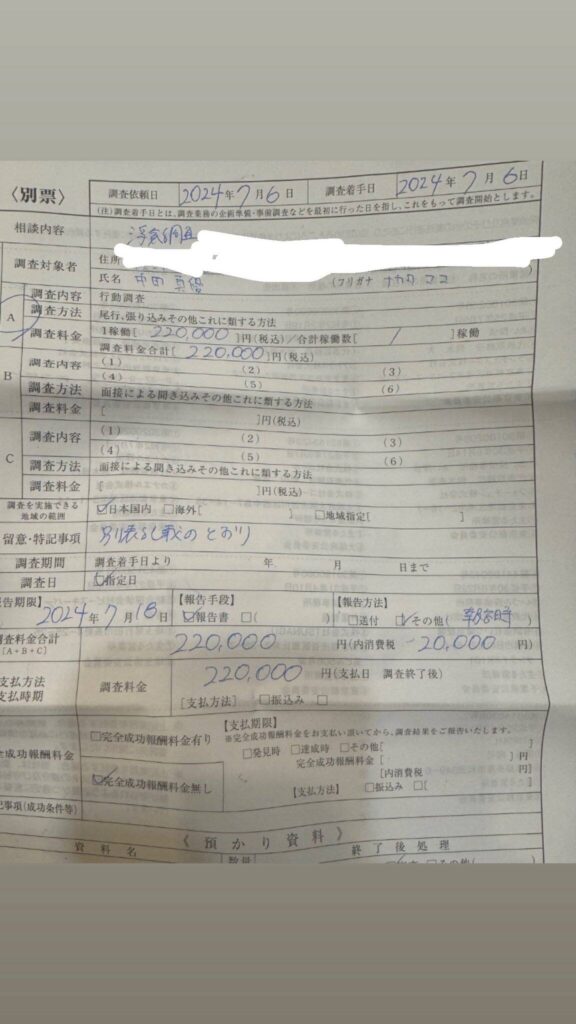 〈別票〉
調査依頼日 2024年7月6日 調査着手日 2024年7月6日
(注)調査着手日とは、調査業務の企画準備・事前調査などを最初に行った日を指し、これをもって調査開始とします。
相談内容 浮気調査
調査対象者 住所
氏名 中田 (フリガナ ナカタ ココ
A 調査内容 行動調査
調査方法 尾行、張り込みその他これに類する方法
調査料金 1稼働[220,000]円(税込)/合計稼働数[ / ]稼働
調査料金合計[220,000]円(税込)
B 調査内容 (1) (2) (3)
(4) (5) (6)
調査方法 面接による聞き込みその他これに類する方法
調査料金 [ ]円(税込)
C 調査内容 (1) (2) (3)
(4) (5) (6)
調査方法 面接による聞き込みその他これに類する方法
調査料金 [ ]円(税込)
調査を実施できる地域の範囲 ☑日本国内 □海外[ ] □地域指定[ ]
留意・特記事項 別表らし載のとおり
調査期間 調査着手日より 年 月 日まで
調査日 ☑指定日
報告期限】 2024年7月18日 【報告手段】 ☑報告書 □( ) 【報告方法】 □送付 ☑その他( )
調査料金合計 [A+B+C] 220,000 円(内消費税 20,000 円)
支払方法 支払時期 調査料金 220,000 円(支払日 調査終了後)
[支払方法] □振込み □
【支払期限】
※完全成功報酬料金をお支払い頂いてから、調査結果をご報告いたします。
完全成功報酬料金 □完全成功報酬料金有り □発見時 □達成時 □その他[ ]
完全成功報酬料金 [ ]円
[内消費税 円]
☑完全成功報酬料金無し 【支払方法】 □振込み □[ ]
記事項(成功条件等)
《預かり資料》
資料名 数量 終了後処理
□その他(